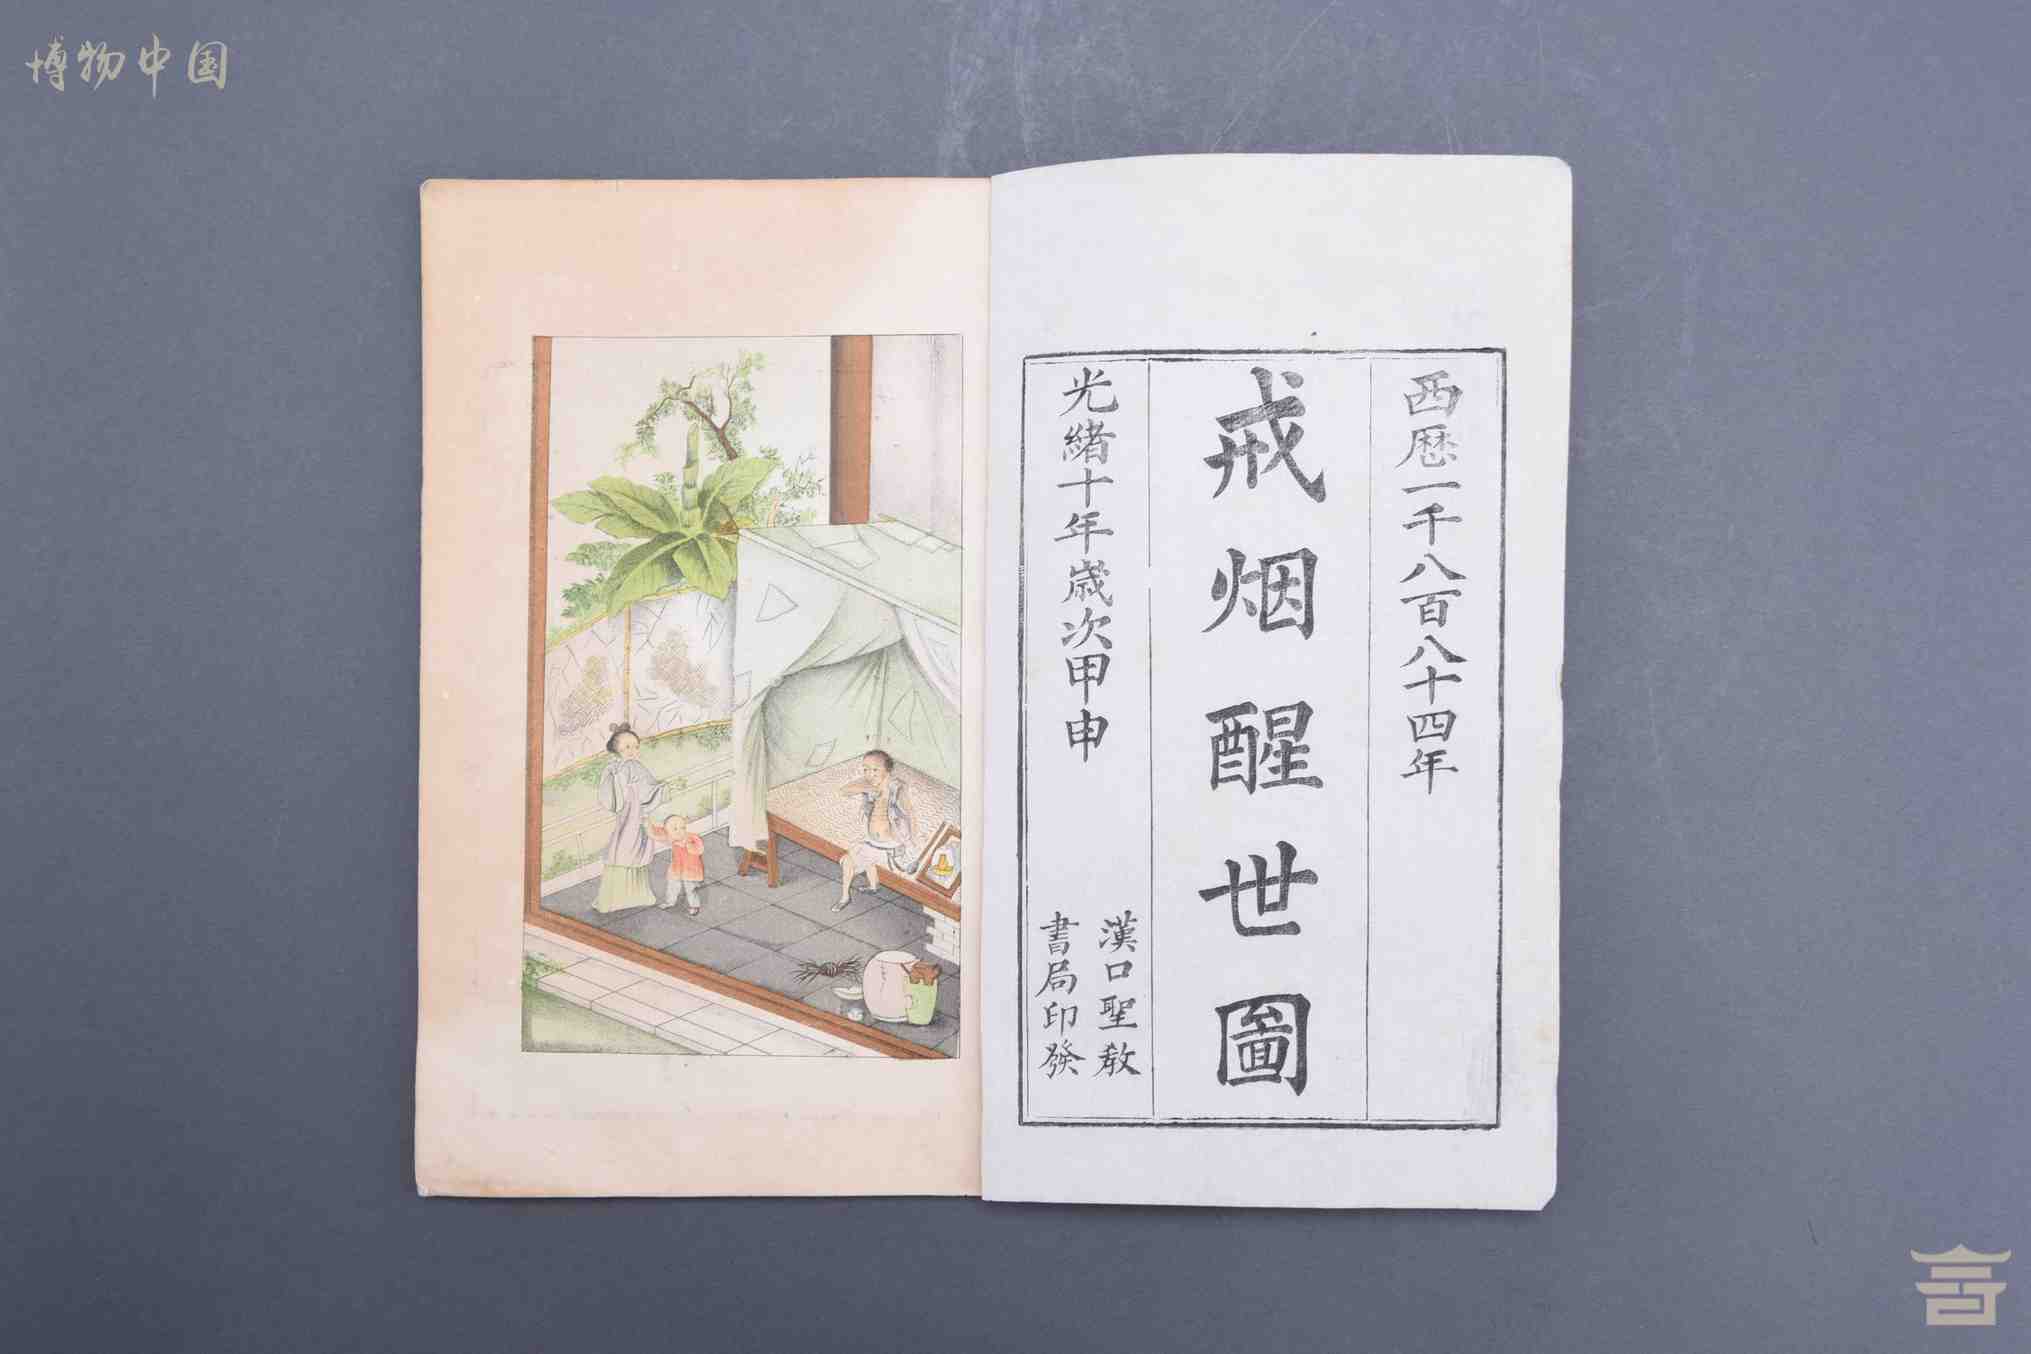 博物中国
西歷一千八百八十四年
戒烟醒世圖
光緒十年歲次甲申
漢口聖教
書局印發